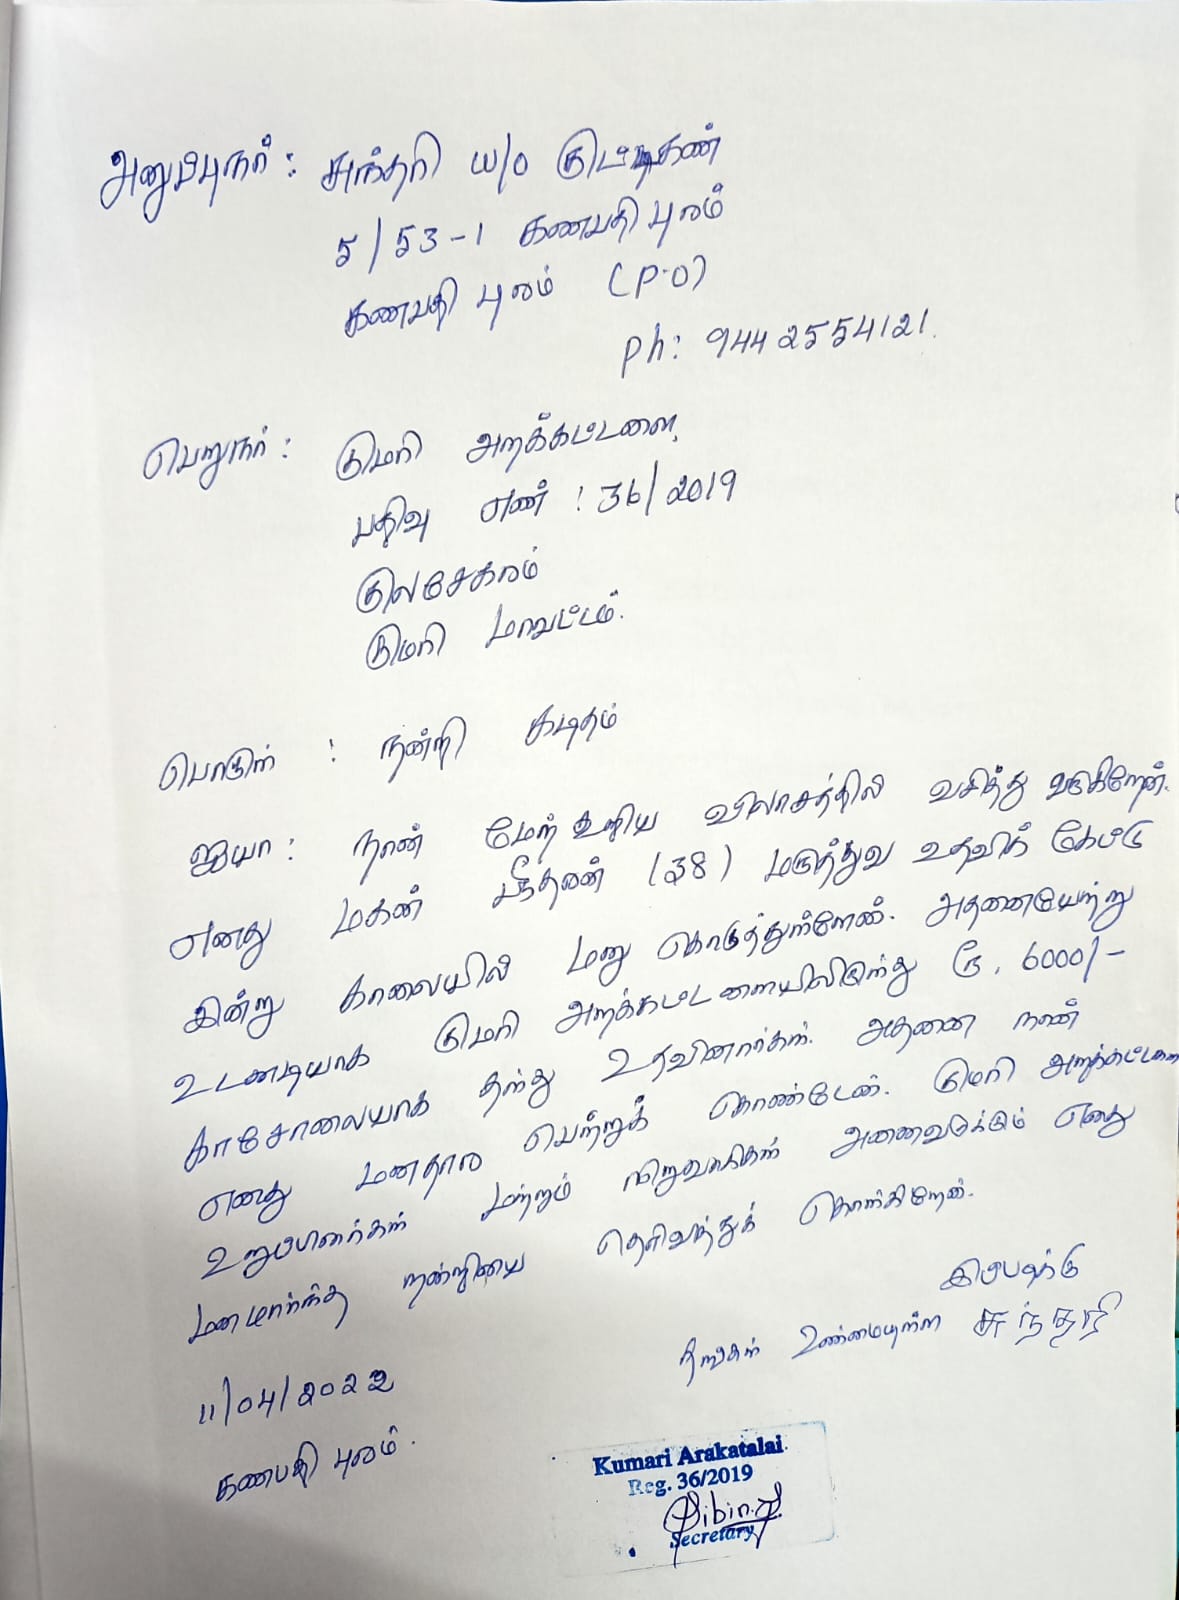 அனுப்புநர் : சுந்தரி w/o
5/53-1 கணபதிபுரம்
கணபதிபுரம் (P.O)
Ph: 9442554121.
பெறுநர் : குமரி அறக்கட்டளை,
பதிவு எண் : 36/2019
குலசேகரம்
குமரி மாவட்டம்.
பொருள் : நன்றி கடிதம்
ஐயா : நான் மேற்கூறிய விலாசத்தில் வசித்து வருகிறேன்.
எனது மகன் (38) மருத்துவ உதவிக் கேட்டு
இன்று காலையில் மனு கொடுத்துள்ளேன். அதனையேற்று
உடனடியாக குமரி அறக்கட்டளையிலிருந்து ரூ. 6000/-
காசோலையாக தந்து உதவினார்கள். அதனை நான்
எனது மனதார பெற்றுக் கொண்டேன். குமரி அறக்கட்டளை
உறுப்பினர்கள் மற்றும் நிறுவாகிகள் அனைவருக்கும் எனது
மனமார்ந்த நன்றியை தெரிவித்துக் கொள்கிறேன்.
இப்படிக்கு
தங்கள் உண்மையுள்ள சுந்தரி
11/04/2022
கணபதிபுரம்.
Kumari Arakatalai
Reg. 36/2019
Secretary